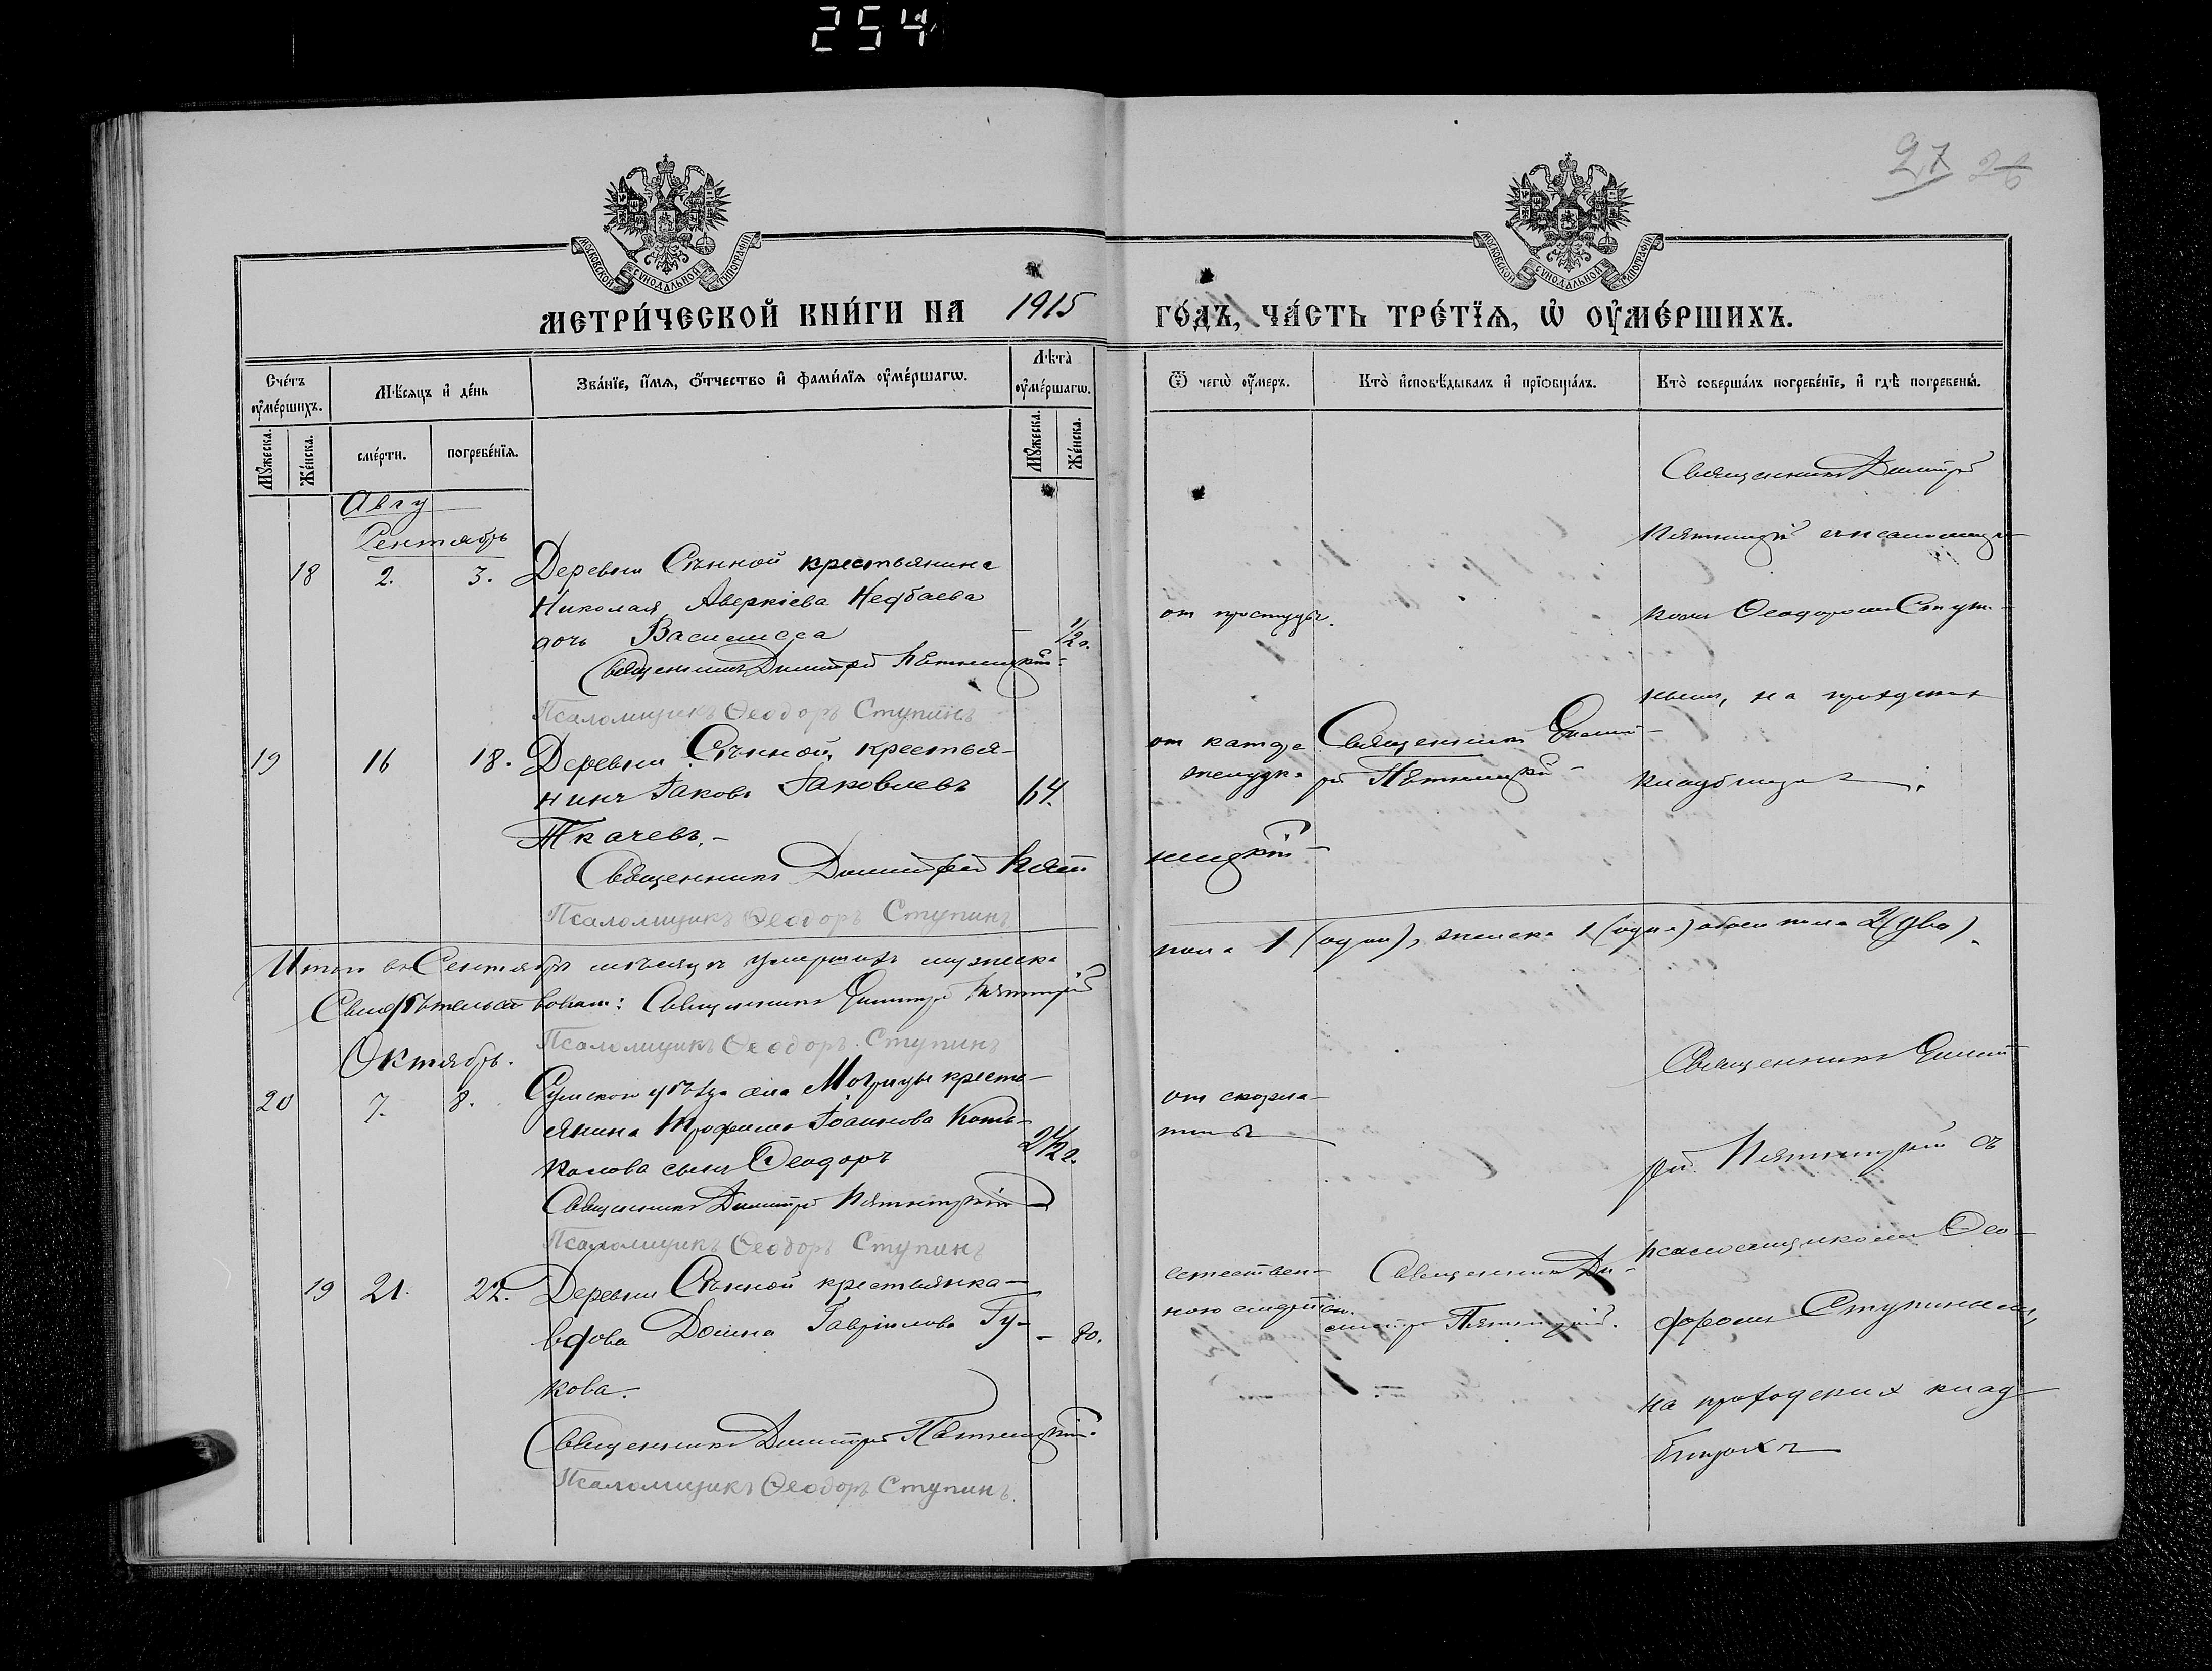 254
27 26
МОСКОВСКОЙ СУНОДАЛЬНОЙ ТИПОГРАФІИ
МОСКОВСКОЙ СУНОДАЛЬНОЙ ТИПОГРАФІИ
МЕТРИ́ЧЕСКОЙ КНИ́ГИ НА 1915 ГО́ДЪ, ЧА́СТЬ ТРЕ́ТЇЯ, Ѡ҆ ОУ҆МЕ́РШИХЪ.
Счéтъ оу҆мéршихъ.
Мꙋ́жеска.
Жéнска.
Мѣ́сѧцъ и҆ дéнь
смéрти.
погребéнїѧ.
Звáнїе, и҆́мѧ, ѻ҆́тчество и҆ фамѝлїѧ оу҆мéршагѡ.
Лѣ́та оу҆мéршагѡ.
Мꙋ́жеска.
Жéнска.
Ѿ чегѡ̀ оу҆́меръ.
Ктò и҆сповѣ́дывалъ и҆ прїѻбщáлъ.
Ктò совершáлъ погребéнїе, и҆ гдѣ̀ погребены̀.
Авгу
Сентябрь
18 2. 3. Деревни Сѣнной крестьянина
Николая Аверкіева Недбаева
дочь Василисса — 1/2 г.
Священникъ Димитрій Пятницкій
Псаломщикъ Ѳеодоръ Ступинъ
от простуды.
Священникъ Димитрій
Пятницкій с псаломщи-
комъ Ѳеодоромъ Ступи-
нымъ, на приходском
кладбищѣ.
19 16 18. Деревни Сѣнной, крестья-
нинъ Іаковъ Іаковлевъ 64.
Ткачевъ.
Священникъ Димитрій Пят
ницкій
Псаломщикъ Ѳеодоръ Ступинъ
от катара
желудка
Священникъ Димит-
рій Пятницкій
Итого въ Сентябрѣ мѣсяцѣ умершихъ мужеска
пола 1 (один), женска 1 (одна) обоего пола 2 (два).
Свидѣтельствовали: Священникъ Димитрій Пятницкій
Псаломщикъ Ѳеодоръ Ступинъ
Октябрь.
20 7. 8. Сумского уѣзда села Могрицы кресть-
янина Трофима Іоаннова
сынъ Ѳеодоръ 2 1/2 г.
Священникъ Димитрій Пятницкій
Псаломщикъ Ѳеодоръ Ступинъ
от скарла-
тины
Священникъ Димит
рій Пятницкій съ
псаломщикомъ Ѳео-
доромъ Ступинымъ,
на приходских клад-
бищахъ
19 21. 22. Деревни Сѣнной крестьянка
вдова Домна Гавріилова Гу- — 80.
кова.
Священникъ Димитрій Пятницкій
Псаломщикъ Ѳеодоръ Ступинъ.
естествен-
ною смертію.
Священникъ Ди-
митрій Пятницкій.